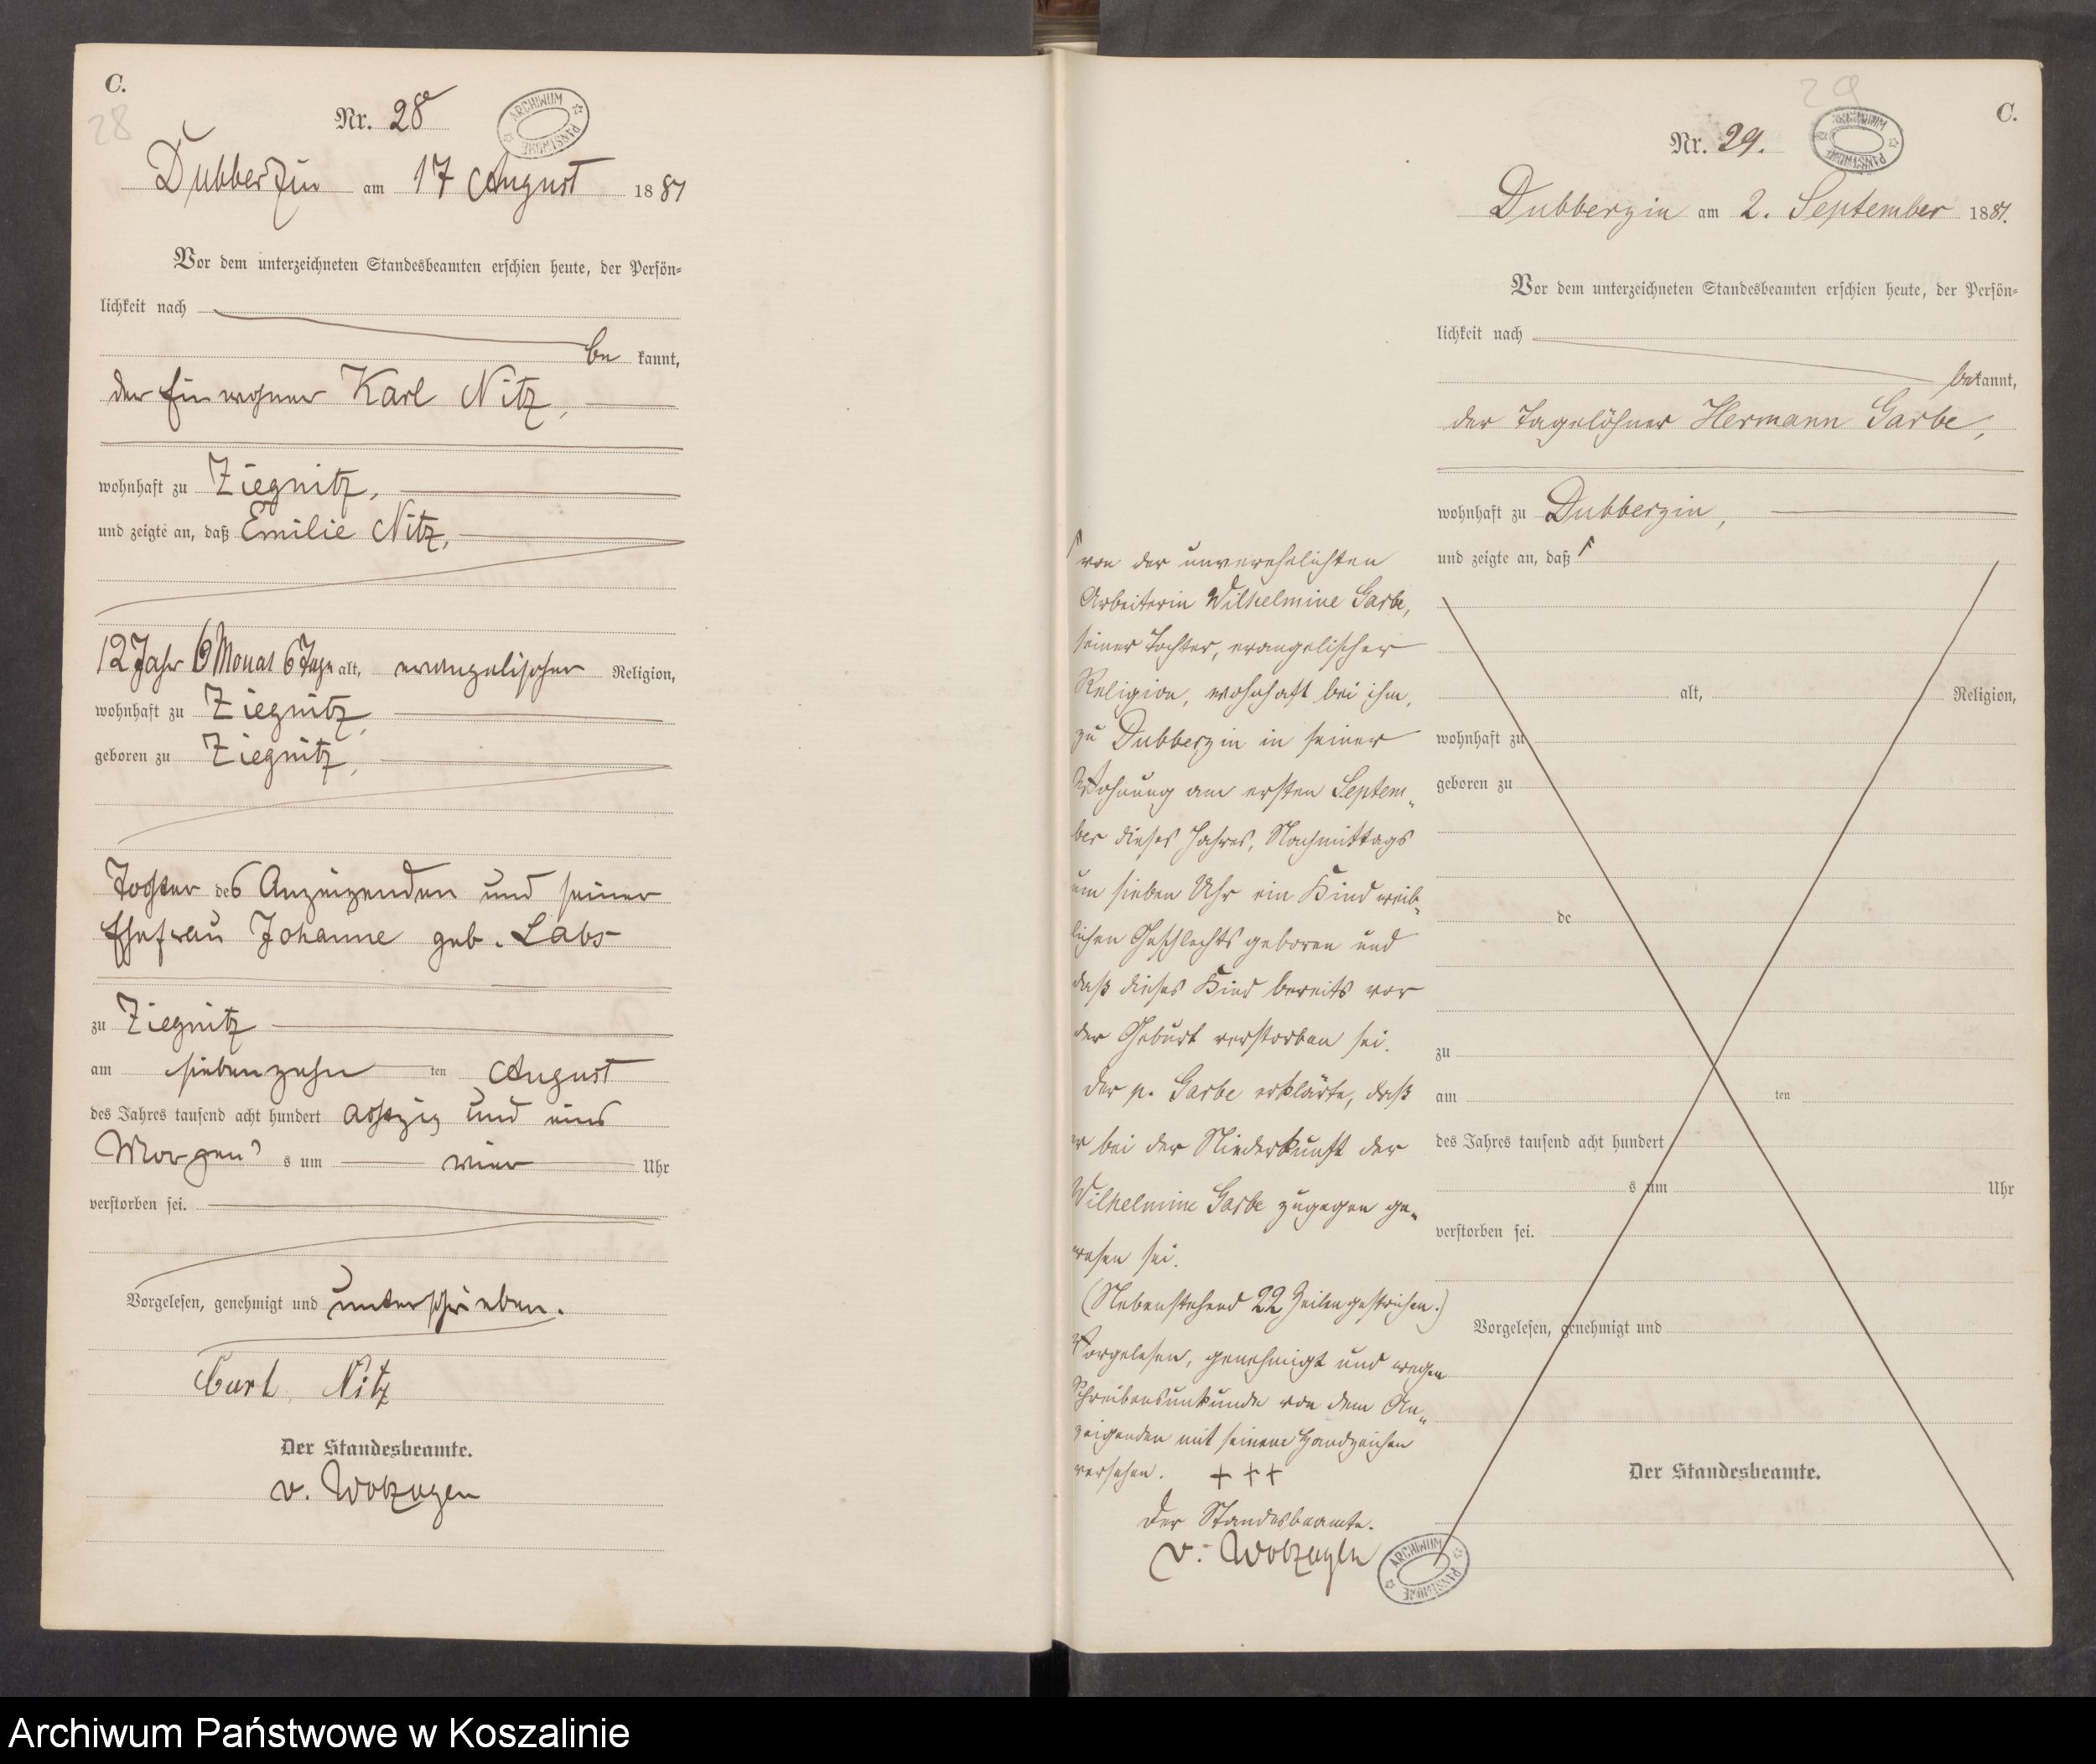 C.
28
Nr. 28
ARCHIWUM PAŃSTWOWE
Dubberzin am 17 August 1881
Vor dem unterzeichneten Standesbeamten erschien heute, der Persön-
lichkeit nach
be kannt,
der Einwohner Karl Nitz,
wohnhaft zu Ziegnitz,
und zeigte an, daß Emilie Nitz,
12 Jahr 6 Monat 6 Tage alt, evangelischer Religion,
wohnhaft zu Ziegnitz,
geboren zu Ziegnitz,
Tochter des Anzeigenden und seiner
Ehefrau Johanne geb. Labs
zu Ziegnitz
am siebenzehn ten August
des Jahres tausend acht hundert achtzig und eins
Morgen s um vier Uhr
verstorben sei.
Vorgelesen, genehmigt und unterschrieben.
Carl Nitz
Der Standesbeamte.
v. Wolzogen
29
C.
Nr. 29.
ARCHIWUM PAŃSTWOWE
Dubberzin am 2. September 1881.
Vor dem unterzeichneten Standesbeamten erschien heute, der Persön-
lichkeit nach
bekannt,
der Tagelöhner Hermann Garbe,
wohnhaft zu Dubberzin,
und zeigte an, daß
von der unverehelichten
Arbeiterin Wilhelmine Garbe,
seiner Tochter, evangelischer
Religion, wohnhaft bei ihm,
zu Dubberzin in seiner
Wohnung am ersten Septem-
ber dieses Jahres, Nachmittags
um sieben Uhr ein Kind weib-
lichen Geschlechts geboren und
daß dieses Kind bereits vor
der Geburt verstorben sei.
Der p. Garbe erklärte, daß
er bei der Niederkunft der
Wilhelmine Garbe zugegen ge-
wesen sei.
(Nebenstehend 22 Zeilen gestrichen.)
Vorgelesen, genehmigt und wegen
Schreibensunkunde von dem An-
zeigenden mit seinem Handzeichen
versehen. + + +
Der Standesbeamte.
v. Wolzogen
ARCHIWUM PAŃSTWOWE
alt, Religion,
wohnhaft zu
geboren zu
de
zu
am ten
des Jahres tausend acht hundert
s um Uhr
verstorben sei.
Vorgelesen, genehmigt und
Der Standesbeamte.
Archiwum Państwowe w Koszalinie